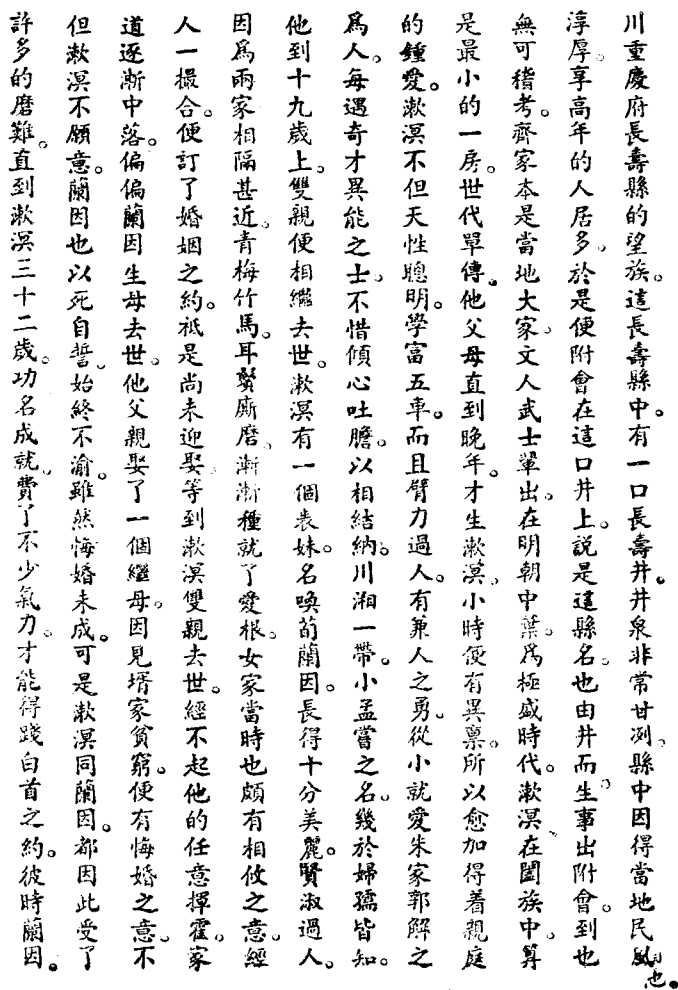 川重慶府長壽縣的望族。這長壽縣中。有一口長壽井。井泉非常甘洌。縣中因得當地民風
淳厚。享高年的人居多。於是便附會在這口井上。說是這縣名。也由井而生。事出附會。到也
無可稽考。齊家本是當地大家。文人武士輩出。在明朝中葉。爲極盛時代。漱溟在闔族中。算
是最小的一房。世代單傳。他父母直到晚年。才生漱溟。小時便有異禀。所以愈加得着親庭
的鍾愛。漱溟不但天性聰明。學富五車。而且臂力過人。有兼人之勇。從小就愛朱家郭解之
爲人。每遇奇才異能之士。不惜傾心吐膽。以相結納。川湘一帶。小孟嘗之名。幾於婦孺皆知。
他到十九歲上。雙親便相繼去世。漱溟有一個表妹。名喚荀蘭因。長得十分美麗。賢淑過人。
因爲兩家相隔甚近。青梅竹馬。耳鬢廝磨。漸漸種就了愛根。女家當時也頗有相攸之意。經
人一撮合。便訂了婚姻之約。祇是尚未迎娶。等到漱溟雙親去世。經不起他的任意揮霍。家
道逐漸中落。偏偏蘭因生母去世。他父親娶了一個繼母。因見壻家貧窮。便有悔婚之意。不
但漱溟不願意。蘭因也以死自誓。始終不渝。雖然悔婚未成。可是漱溟同蘭因。都因此受了
許多的磨難。直到漱溟三十二歲。功名成就。費了不少氣力。才能得踐白首之約。彼時蘭因。
也。